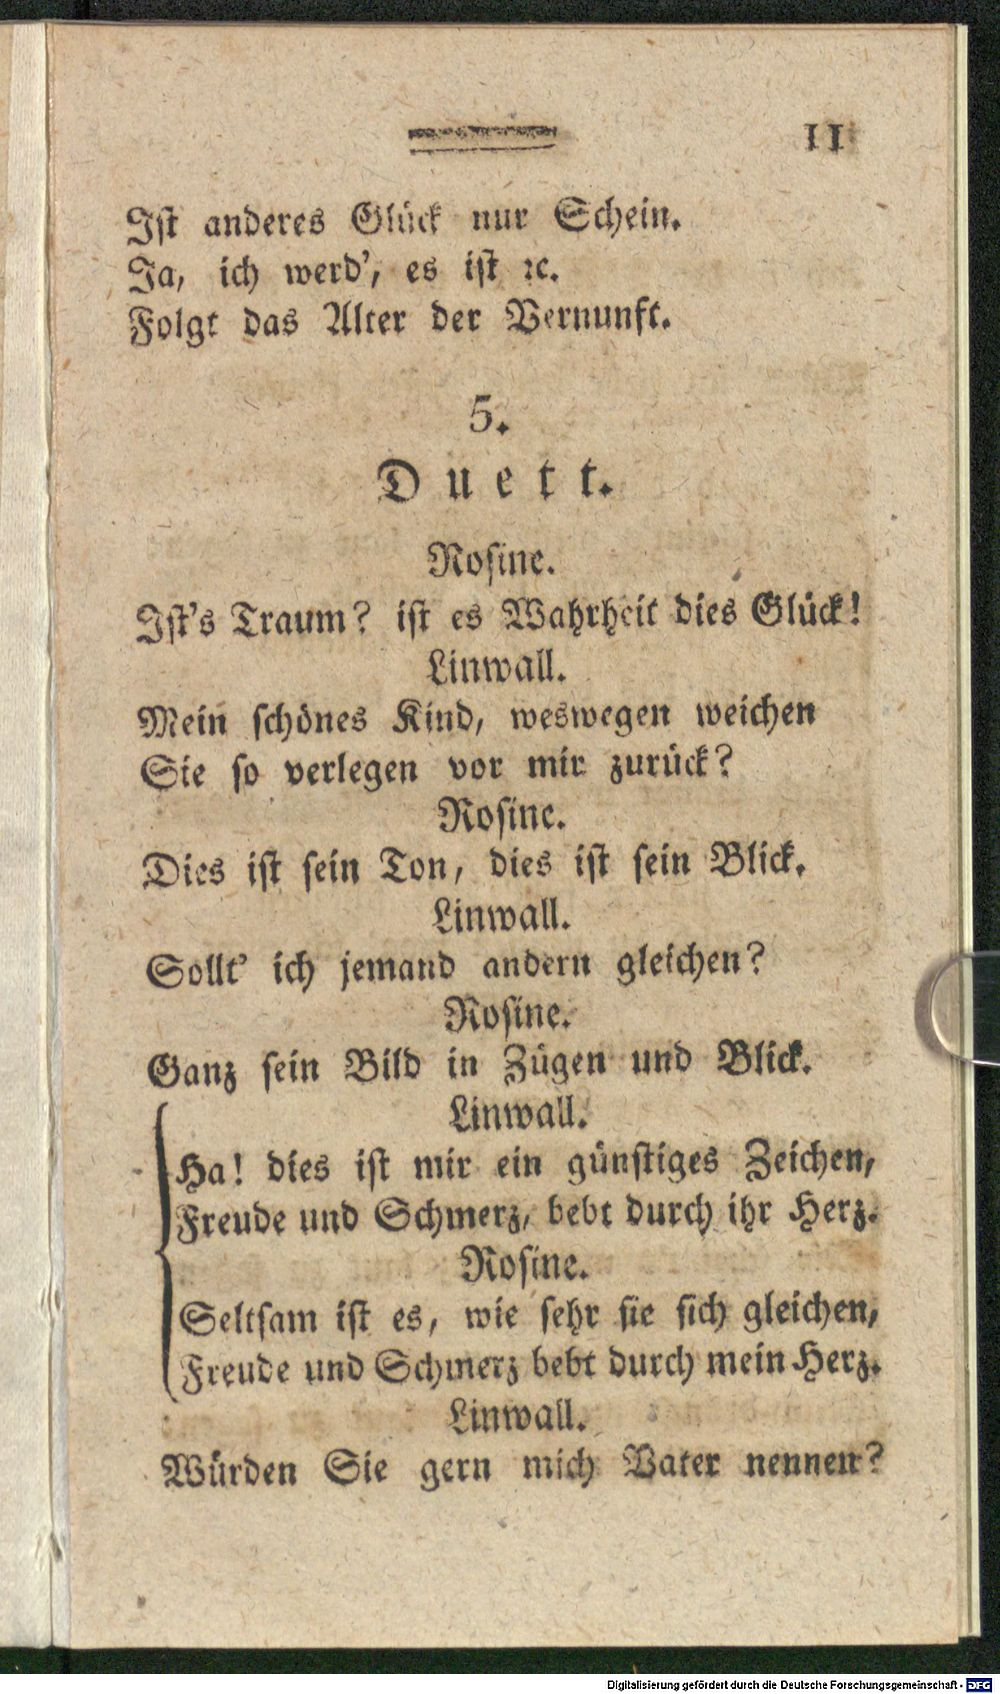 11
Ist anderes Glück nur Schein.
Ja, ich werd', es ist ꝛc.
Folgt das Alter der Vernunft.
5.
Duett.
Rosine.
Ist's Traum? ist es Wahrheit dies Glück!
Linwall.
Mein schönes Kind, weswegen weichen
Sie so verlegen vor mir zurück?
Rosine.
Dies ist sein Ton, dies ist sein Blick.
Linwall.
Sollt' ich jemand andern gleichen?
Rosine.
Ganz sein Bild in Zügen und Blick.
Linwall.
Ha! dies ist mir ein günstiges Zeichen,
Freude und Schmerz, bebt durch ihr Herz.
Rosine.
Seltsam ist es, wie sehr sie sich gleichen,
Freude und Schmerz bebt durch mein Herz.
Linwall.
Würden Sie gern mich Vater nennen?
Digitalisierung gefördert durch die Deutsche Forschungsgemeinschaft - DFG